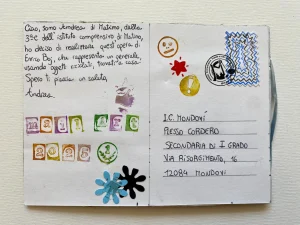 Ciao, sono Andrea di Matino, dalla
3°C dell'istituto comprensivo di Matino,
ho deciso di realizzare quest'opera di
Enrico Baj, che rappresenta un generale,
usando oggetti riciclati, trovati a casa.
Spero ti piaccia un saluto,
Andrea.
I.C. MONDOVÌ
PLESSO CORDERO
SECONDARIA DI I GRADO
VIA RISORGIMENTO, 16
12084 MONDOVÌ